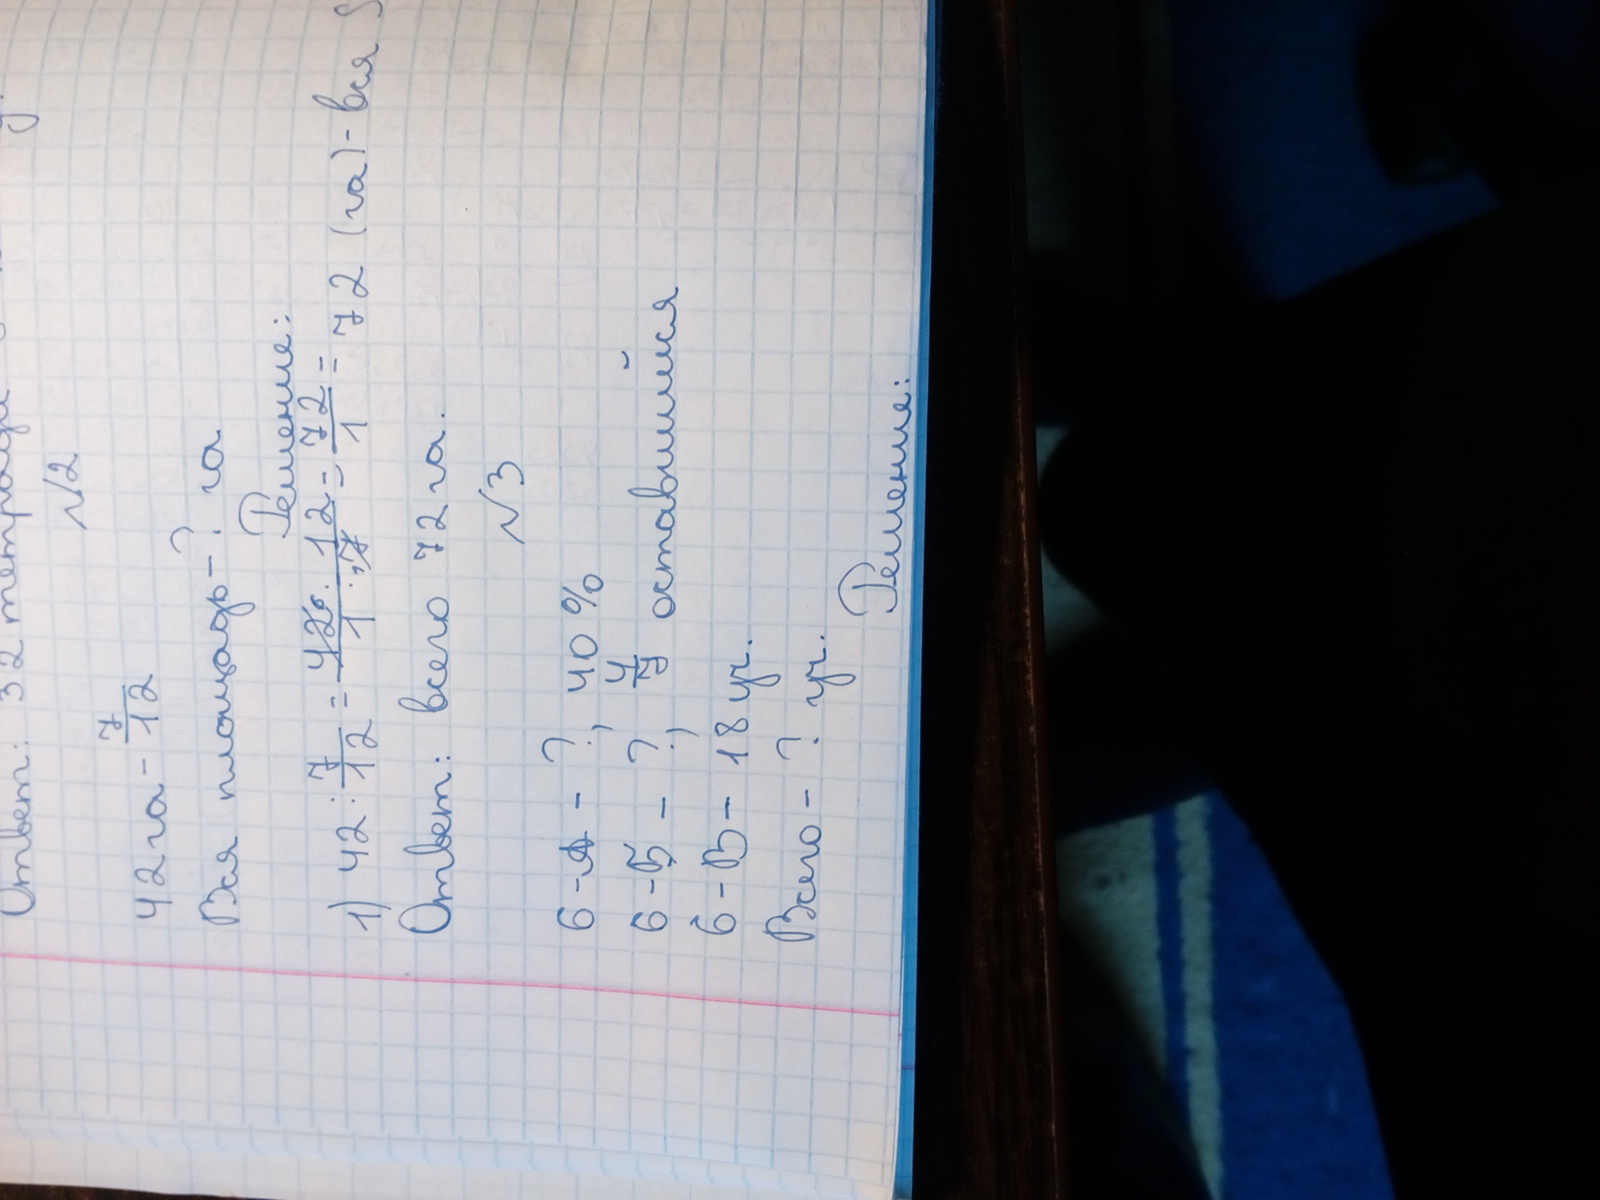 Ответ: 32 тетради
№2
42 га - 7/12
Вся площадь - ? га.
Решение:
1) 42 : 7/12 = 42 · 12 / 1 · 7 = 72/1 = 72 (га) - вся S
Ответ: всего 72 га.
№3
6 - А - ?, 40%
6 - Б - ?, 4/7 оставшийся
6 - В - 18 уч.
Всего - ? уч.
Решение: